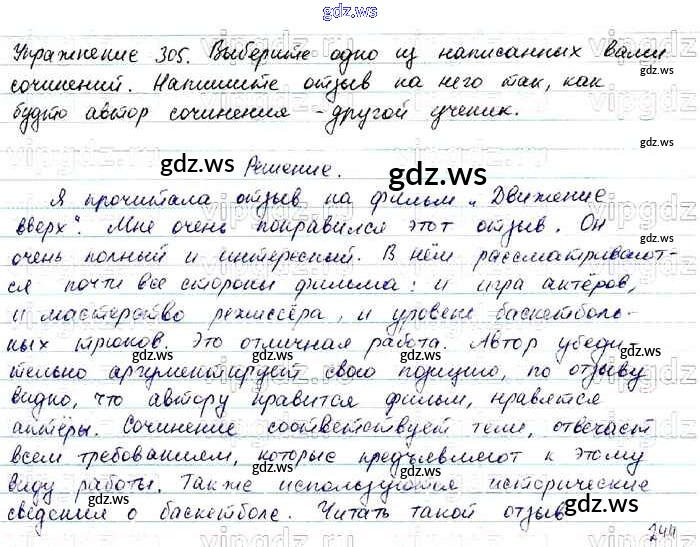 gdz.ws
Упражнение 305. Выберите одно из написанных вами
сочинений. Напишите отзыв на него так, как
будто автор сочинения - другой ученик.
gdz.ws
Решение.
gdz.ws
Я прочитала отзыв на фильм „Движение
вверх". Мне очень понравился этот отзыв. Он
очень полный и интересный. В нём рассматривают-
ся почти все стороны фильма: и игра актёров,
и мастерство режиссёра, и уровень баскетболь-
ных трюков. Это отличная работа. Автор убеди-
тельно аргументирует свою позицию, по отзыву
видно, что автору нравится фильм, нравятся
актёры. Сочинение соответствует теме, отвечает
всем требованиям, которые предъявляют к этому
виду работы. Также используются исторические
сведения о баскетболе. Читать такой отзыв
244